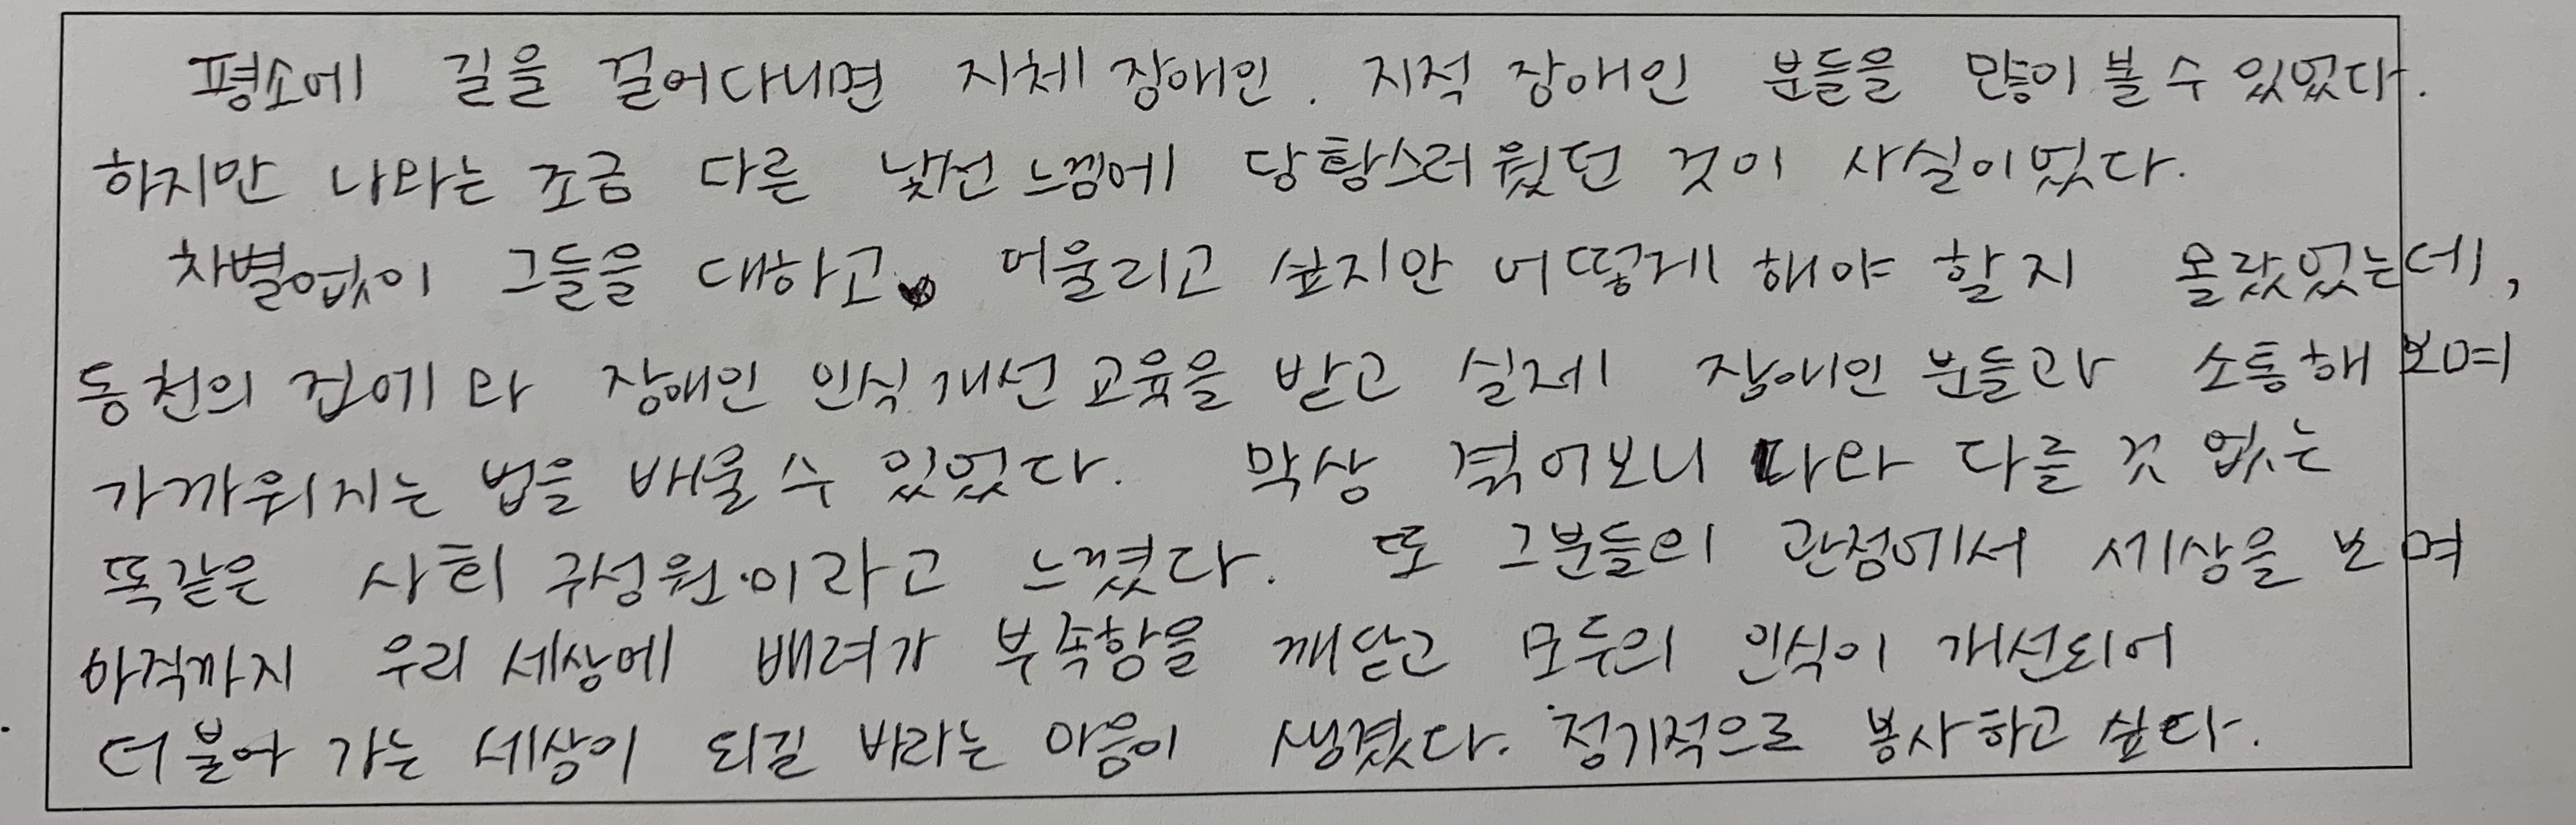 평소에 길을 걸어다니면 지체 장애인, 지적 장애인 분들을 많이 볼 수 있었다.
하지만 나와는 조금 다른 낯선 느낌에 당황스러웠던 것이 사실이었다.
차별없이 그들을 대하고 어울리고 싶지만 어떻게 해야 할지 몰랐었는데,
동천의 집에 와 장애인 인식 개선 교육을 받고 실제 장애인 분들과 소통해 보며
가까워지는 법을 배울 수 있었다. 막상 겪어보니 나와 다를 것 없는
똑같은 사회 구성원이라고 느꼈다. 또 그분들의 관점에서 세상을 보며
아직까지 우리 세상에 배려가 부족함을 깨닫고 모두의 인식이 개선되어
더불어 가는 세상이 되길 바라는 마음이 생겼다. 정기적으로 봉사하고 싶다.